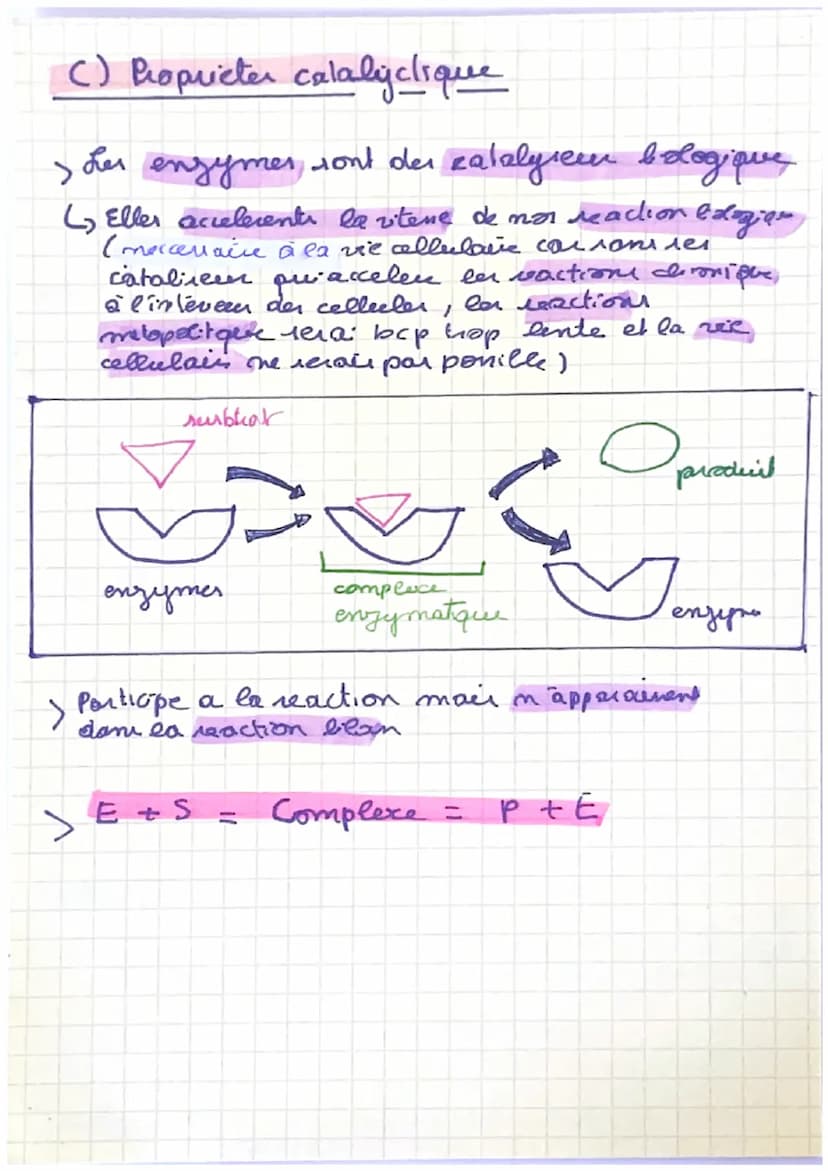 C) Proprieter catalyctique
> Les enzymes sont des catalyseur biologique
↳ Elles accelerents la vitesse de nos reaction biologique
(neccessaire à la vie cellulaire car sans ses
cataliseur qui accelere les reactions chimique
à l'intérieur des cellules, les reactions
metabolique serai bcp trop lente et la vie
cellulaire ne serait pas possible)
substrat
produit
enzymes
complexe
enzymatique
enzyme
> Participe a la reaction mais n'apparaissent
dans la reaction bilan
> E + S = Complexe = P + E